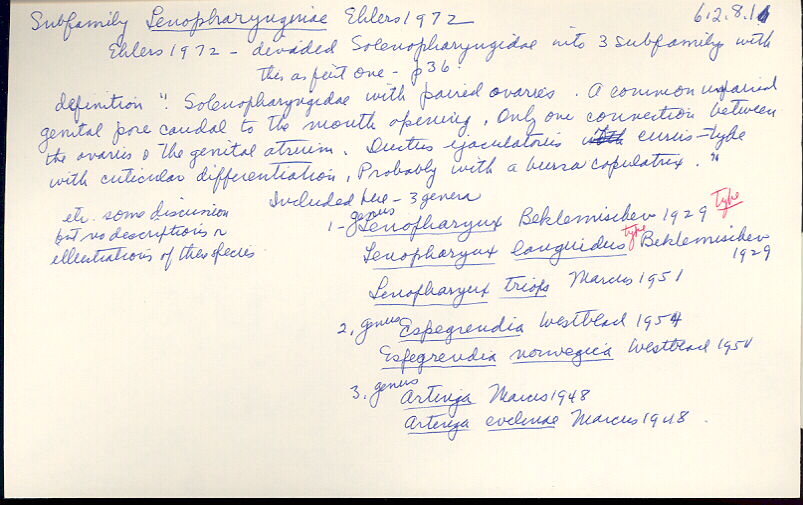 Subfamily Lenopharynginae Ehlers 1972 6.2.8.1
Ehlers 1972 - divided Solenopharyngidae into 3 subfamily with
this as first one - p36.
definition ": Solenopharyngidae with paired ovaries. A common unpaired
genital pore caudal to the mouth opening. Only one connection between
the ovaries & the genital atrium. Ductus ejaculatorius cirrus-type
with cuticular differentiation. Probably with a bursa copulatrix."
Included here - 3 genera
etc. some discussion
but no descriptions or
illustrations of these species
1 - genus Lenopharynx Beklemischev 1929 type
Lenopharynx languidus type Beklemischev
1929
Lenopharynx triops Marcus 1951
2. genus Espegrendia Westblad 1954
Espegrendia norvegica Westblad 1954
3. genus Arteriga Marcus 1948
Arteriga evelinae Marcus 1948.